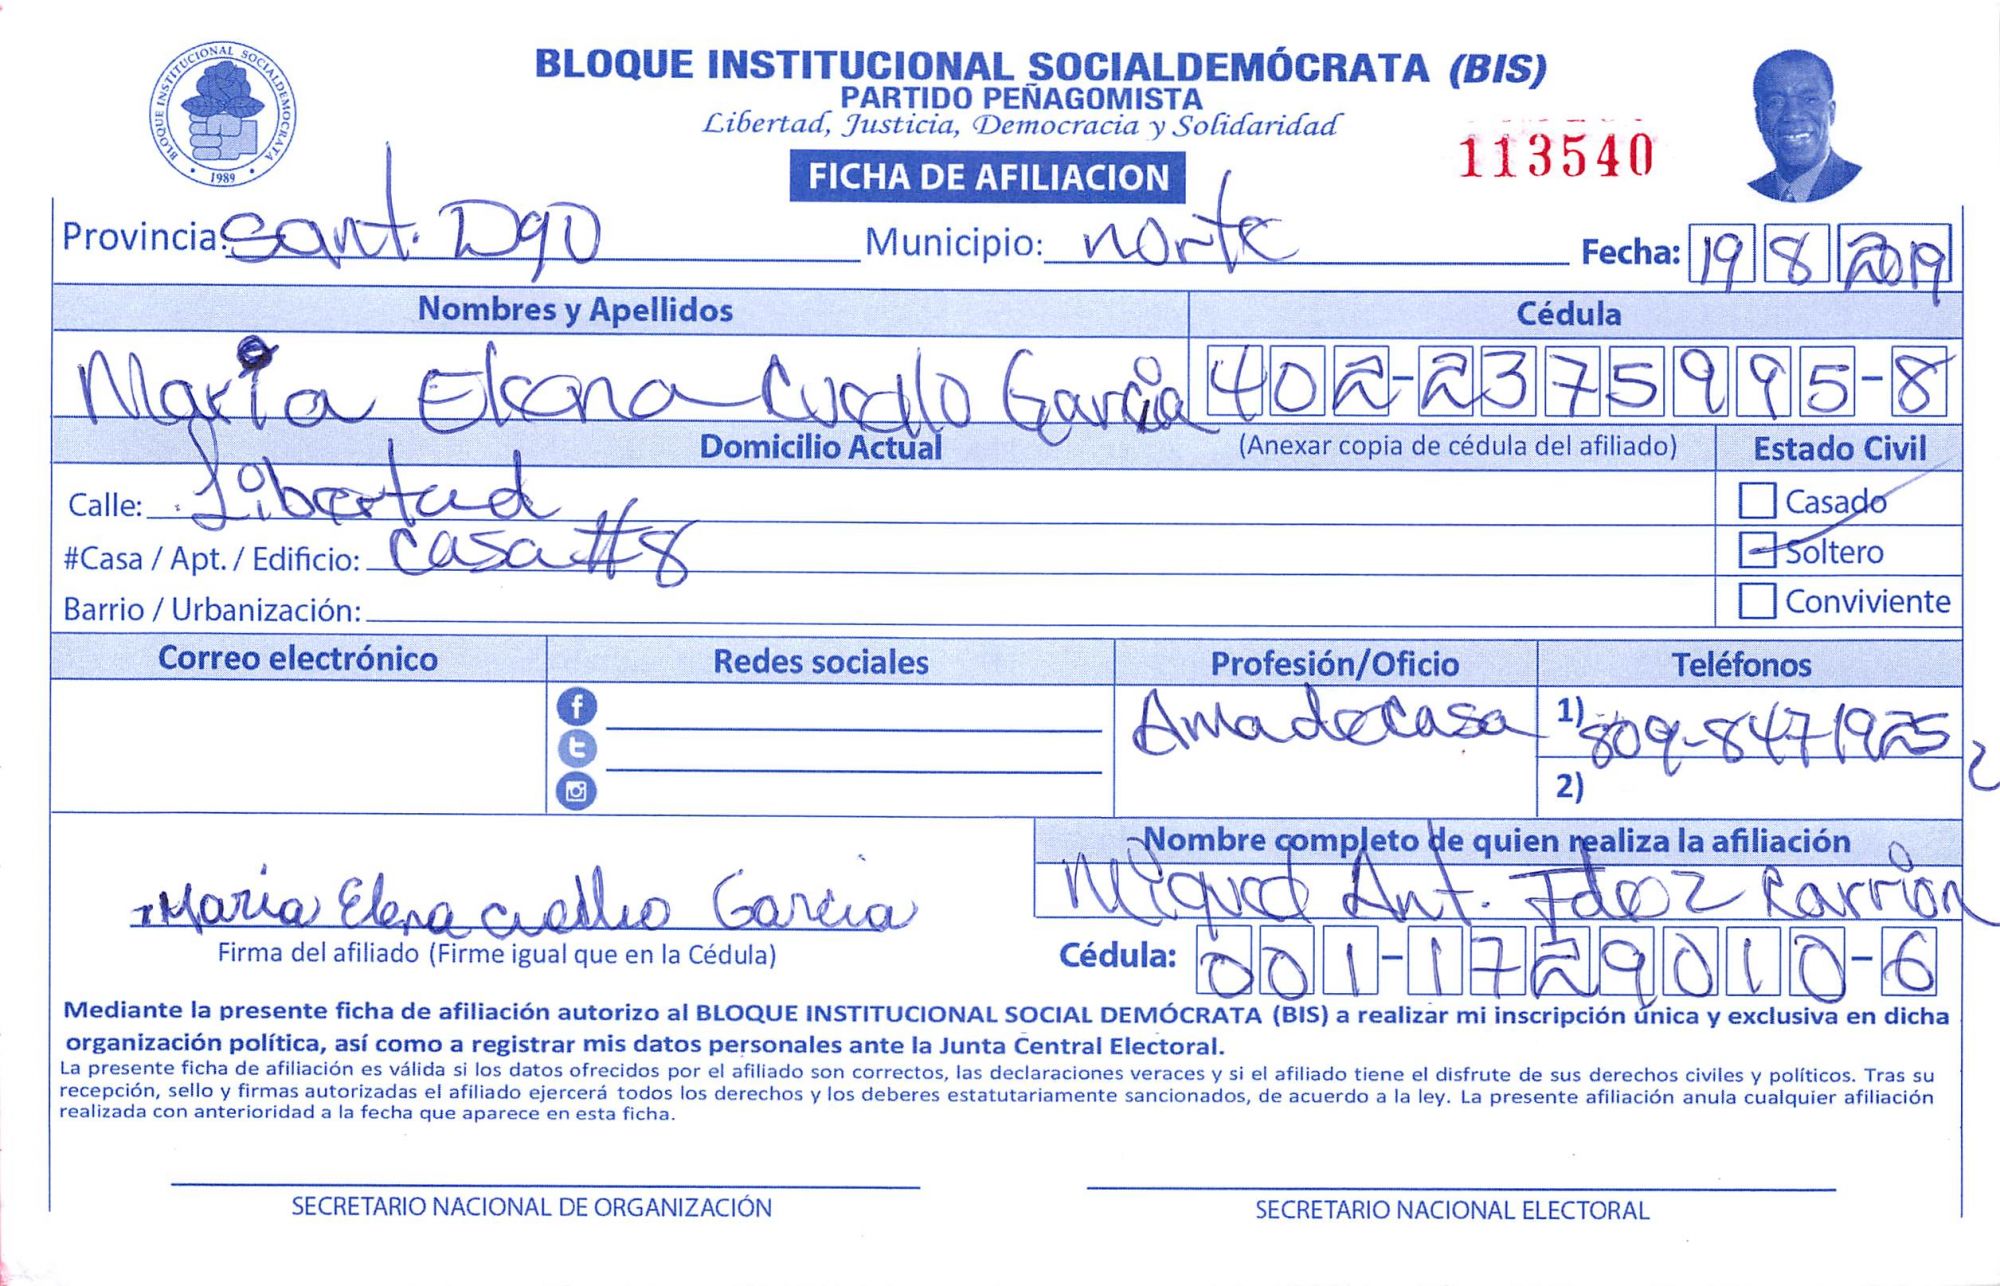 BLOQUE INSTITUCIONAL SOCIALDEMÓCRATA
1989
BLOQUE INSTITUCIONAL SOCIALDEMÓCRATA (BIS)
PARTIDO PEÑAGOMISTA
Libertad, Justicia, Democracia y Solidaridad
113540
FICHA DE AFILIACION
Provincia: Sant. Dgo Municipio: norte Fecha: 19 8 2019
Nombres y Apellidos Cédula
Maria Elena Cuello Garcia 402-2375995-8
Domicilio Actual (Anexar copia de cédula del afiliado) Estado Civil
Calle: Libertad Casado
#Casa / Apt. / Edificio: Casa #8 Soltero
Barrio / Urbanización: Conviviente
Correo electrónico Redes sociales Profesión/Oficio Teléfonos
Ama de casa 1) 809-8471925
2)
Nombre completo de quien realiza la afiliación
Miguel Ant. Fdez Carrion
Maria Elena cuello Garcia
Firma del afiliado (Firme igual que en la Cédula) Cédula: 001-1729010-6
Mediante la presente ficha de afiliación autorizo al BLOQUE INSTITUCIONAL SOCIAL DEMÓCRATA (BIS) a realizar mi inscripción única y exclusiva en dicha
organización política, así como a registrar mis datos personales ante la Junta Central Electoral.
La presente ficha de afiliación es válida si los datos ofrecidos por el afiliado son correctos, las declaraciones veraces y si el afiliado tiene el disfrute de sus derechos civiles y políticos. Tras su
recepción, sello y firmas autorizadas el afiliado ejercerá todos los derechos y los deberes estatutariamente sancionados, de acuerdo a la ley. La presente afiliación anula cualquier afiliación
realizada con anterioridad a la fecha que aparece en esta ficha.
SECRETARIO NACIONAL DE ORGANIZACIÓN SECRETARIO NACIONAL ELECTORAL